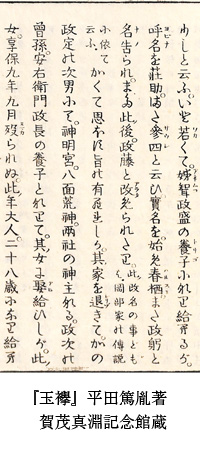 わしと云ふ、いと若くて、姉聟政盛の養子にれせ給へるが。
呼名を莊助、また參四と云ひ實名を始め春栖、また政躬と
名告られ、また、此後政藤と改めらたにせ、此改名の事ども
く、岡部家の傳説
に依て
云ふ、かくて思ふに旨の有にし、其家を退きて、かの
政定の次男にて、神明宮、八面荒神兩社の神主れる、政次の
曾孫、安右衞門政長の養子とれせて、其女に娶給ひしが、此
女享保九年九月歿られぬ、此年大人二十八歳にれせ給へり
『玉襷』平田篤胤著
賀茂真淵記念館蔵